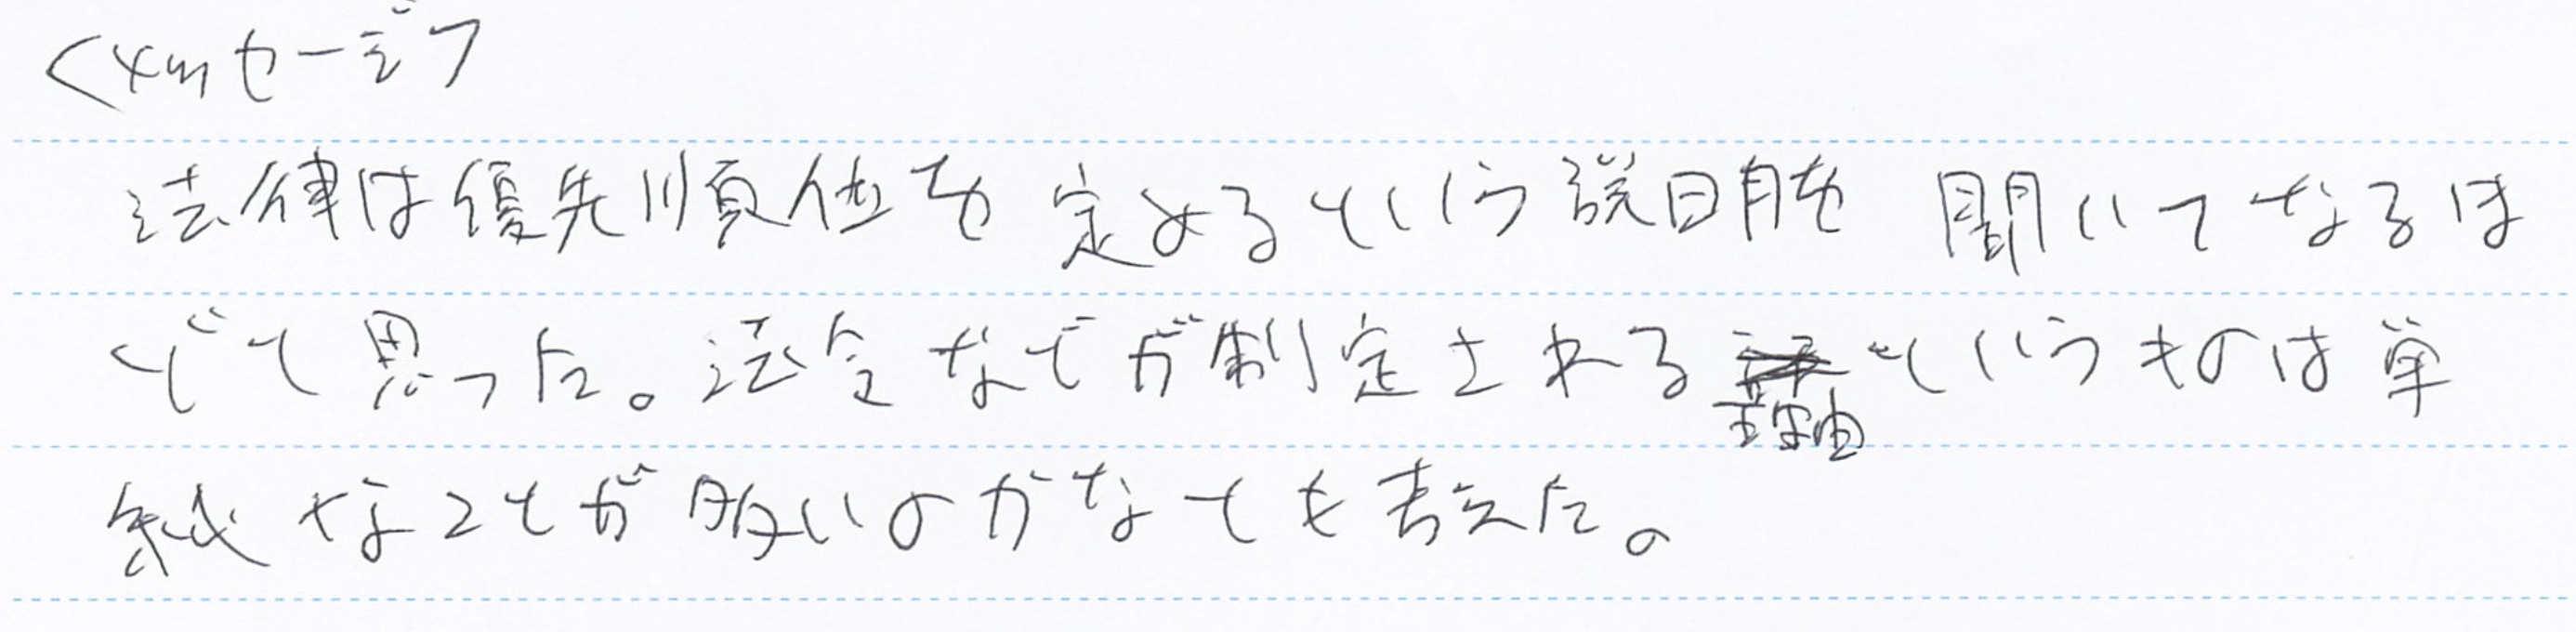 <メッセージ>
法律は優先順位を定めるという説明を聞いてなるほ
どと思った。法令などが制定される理由というものは単
純なことが多いのかなとも考えた。